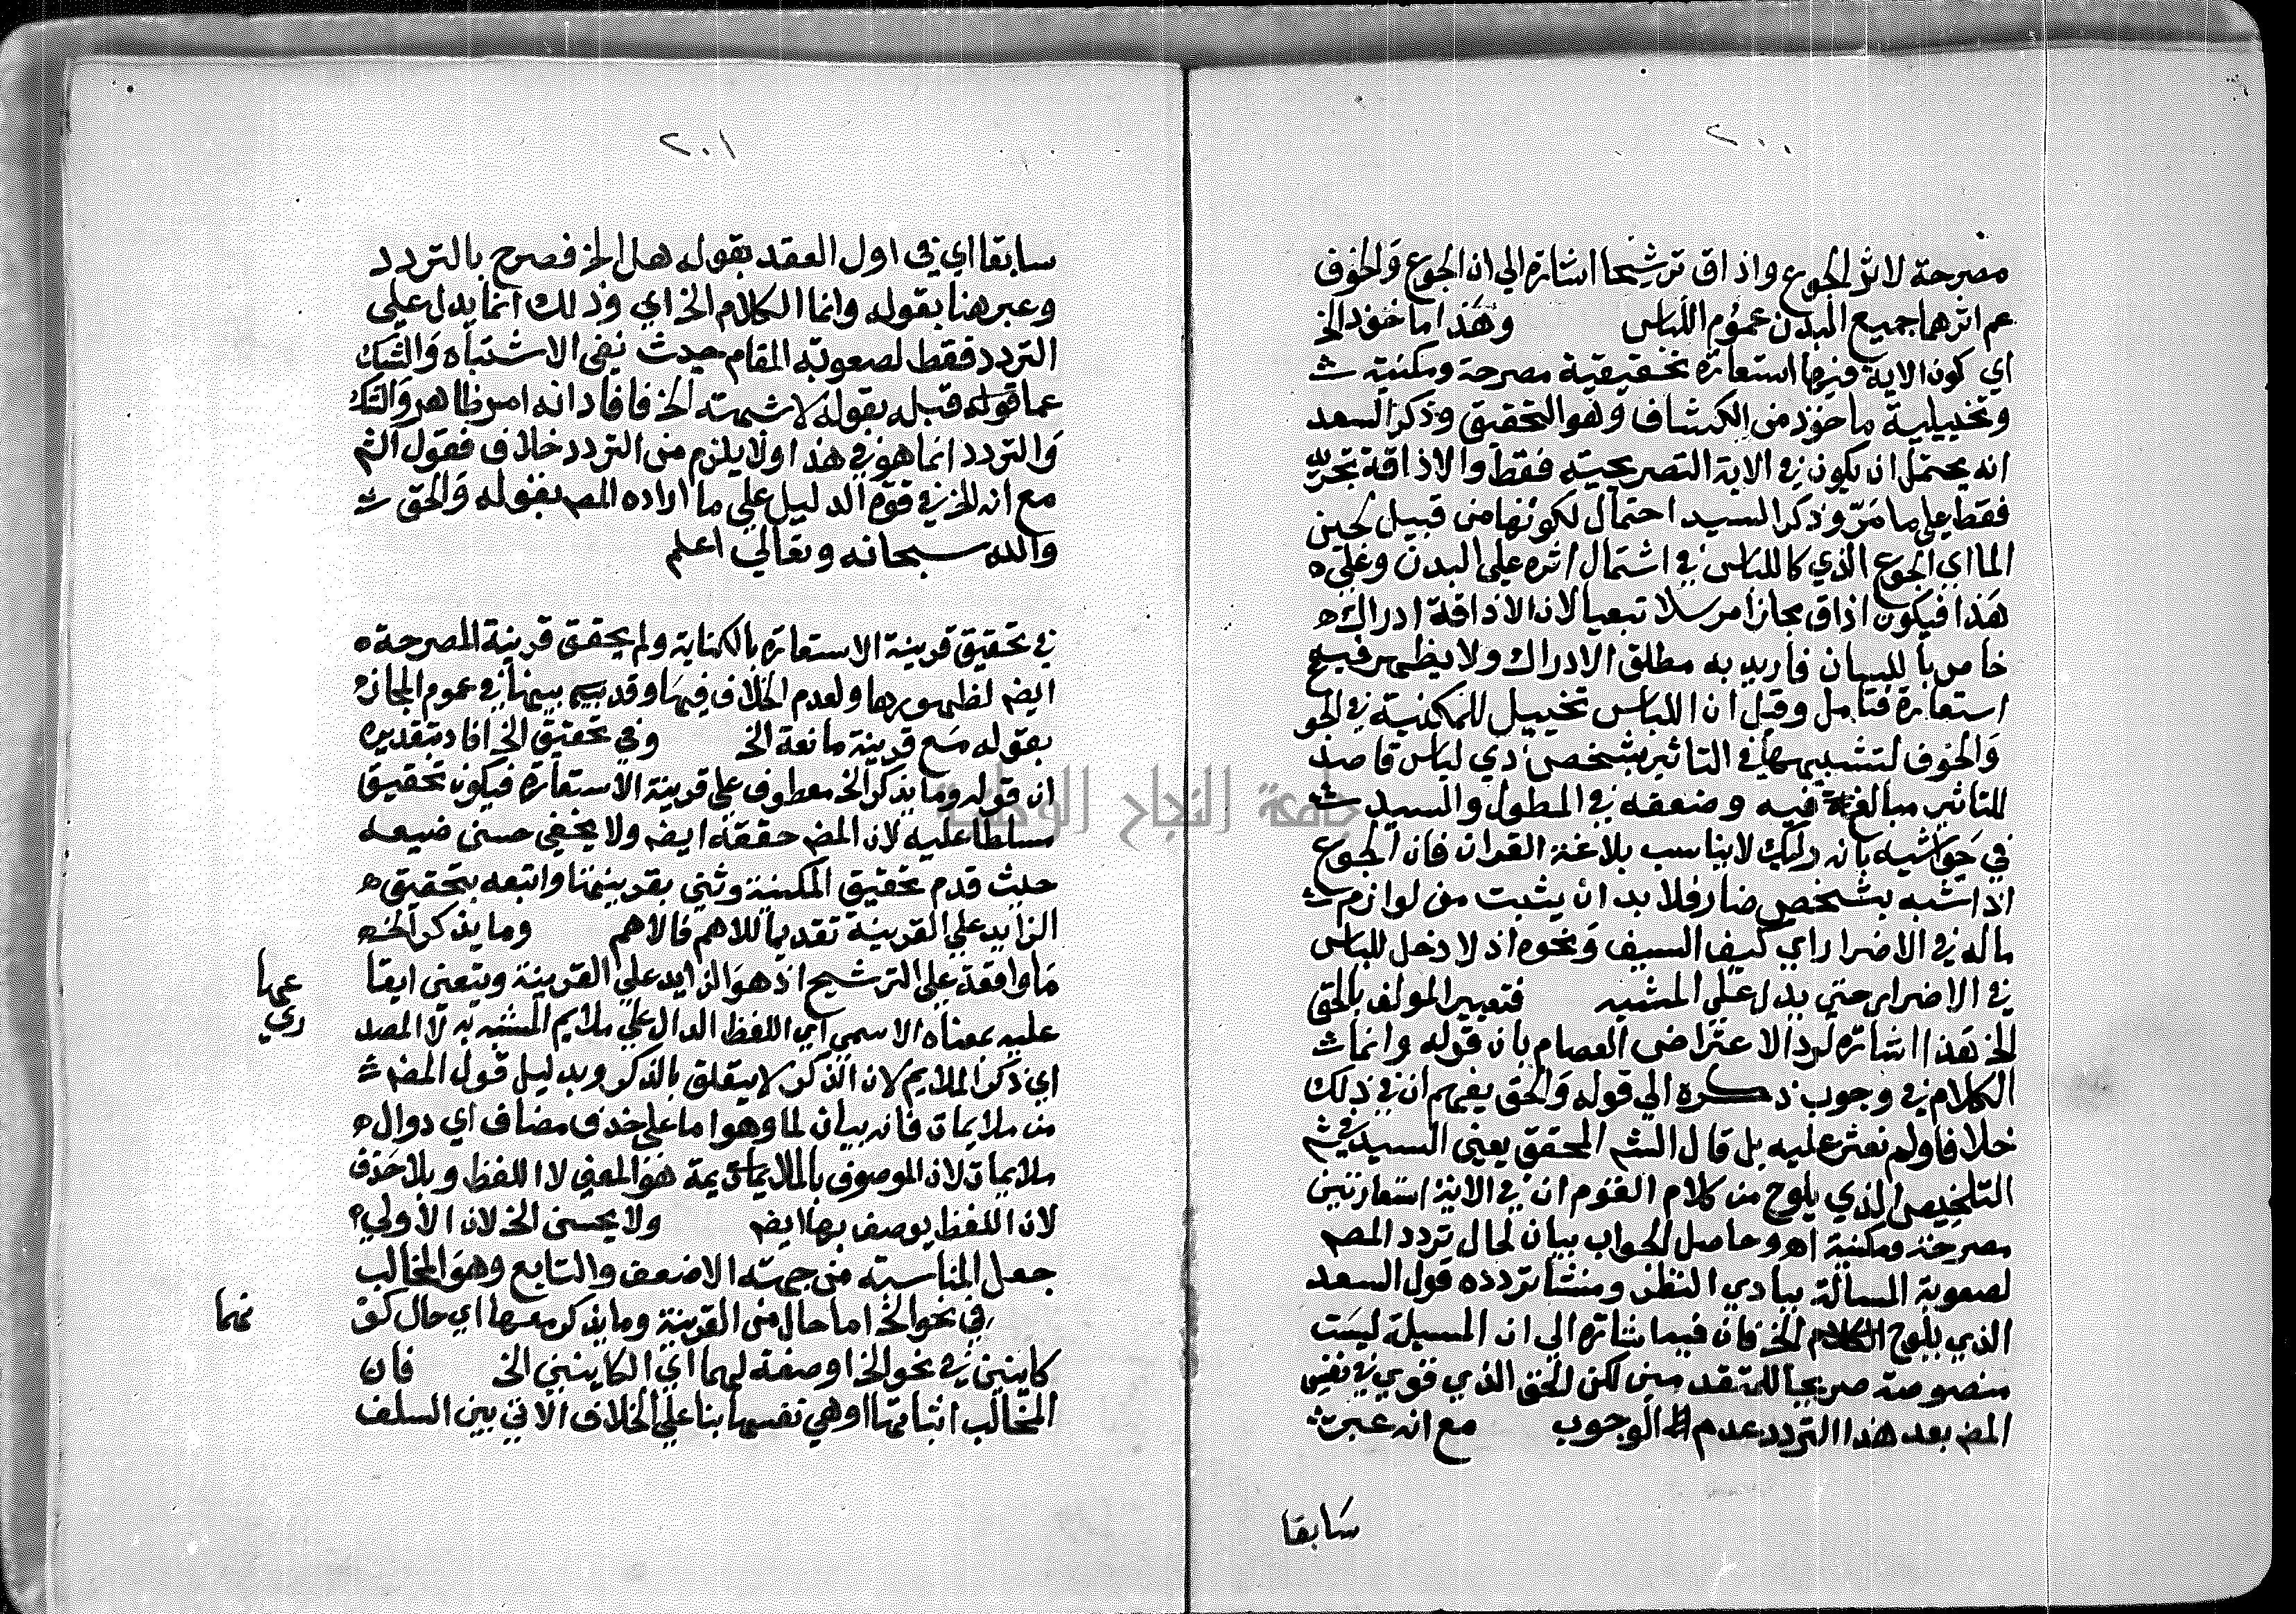 ٢٠٠
مصرحة لاثر الجوع واذاق ترشيحا اشارة الي ان الجوع والخوف
عم اثرهما جميع البدن عموم اللباس وهذا ماخوذ الخ
اي كون الاية فيها استعارة تحقيقية مصرحة ومكنية
وتخييلية ماخوذ من الكشاف وهو التحقيق وذكر السعد
انه يحتمل ان يكون في الاية التصريحية فقط والاذاقة تجريد
فقط علي ما مر وذكر السيد احتمال لكونها من قبيل لجين
الما اي الجوع الذي كاللباس في اشتمال اثره علي البدن وعلي
هذا فيكون اذاق مجازا مرسلا تبعيا لان الاذاقة ادراك
خاص باللسان فاريد به مطلق الادراك ولا يظهر فيه
استعارة فتامل وقيل ان اللباس تخييل للمكنية في الجو
والخوف لتشبيههما في التاثير بشخص ذي لباس قاصد
للتاثير مبالغ فيه وضعفه في المطول والسيد
في حواشيه بانه ركيك لا يناسب بلاغة القران فان الجوع
اذا شبه بشخص ضار فلا بد ان يثبت من لوازم
ماله في الاضرار اي كيف السيف ونحوه اذ لا دخل للباس
في الاضرار حتي يدل علي المشبه فتعبير المولف بالحق
الخ هذا اشارة لرد الاعتراض العصام بان قوله وانما
الكلام في وجوب ذكره الي قوله والحق يفهم ان في ذلك
خلافا ولم نعثر عليه بل قال الشم المحقق يعني السيد في شم
التلخيص الذي يلوح من كلام القوم ان في الاية استعارتين
مصرحة ومكنية اهـ وحاصل الجواب بيان لحال تردد المصم
لصعوبة المسالة ببادي النظر ومنشا تردده قول السعد
الذي يلوح الخ فان فيه اشارة الي ان المسيلة ليست
منصوصة صريحا للمتقدمين لكن الحق الذي قوي في نفس
المص بعد هذا التردد عدم الوجوب مع انه عبر
سابقا
٢٠١
سابقا اي في اول العقد بقوله هل الخ فصرح بالتردد
وعبر هنا بقوله وانما الكلام الخ اي وذلك انما يدل علي
التردد فقط لصعوبة المقام حيث نفي الاشتباه والشك
عما قبله بقوله لا شبهة الخ فافاد انه امر ظاهر والشك
والتردد انما هو في هذا ولا يلزم من التردد خلاف فقول الشم
مع انه الخ في قوة الدليل علي ما اراده المصم بقوله والحق
والله سبحانه وتعالي اعلم
في تحقيق قرينة الاستعارة بالكناية ولم يحقق قرينة المصرحة
ايضم لظهورها ولعدم الخلاف فيها وقد بينها في عموم المجاز
بقوله مع قرينة مانعة الخ وفي تحقيق الخ افاد بتقديره
ان قوله وما يذكر الخ معطوف علي قرينة الاستعارة فيكون تحقيق
مسلطا عليه لان المصم حققه ايضم ولا يخفي حسن صنيعه
حيث قدم تحقيق المكنية وثني بقرينتها واتبعه بتحقيق
الزايد علي القرينة تقديما للاهم فالاهم وما يذكر الخ
ما واقعة علي الترشيح اذ هو الزايد علي القرينة ويتعين ابقا
عليه بمعناه الاسمي اي اللفظ الدال علي ملايم المشبه به لا المصد
عما
ري
اي ذكر الملايم لان الذكر لا يتعلق بالذكر وبدليل قول المصم
من ملايمات فانه بيان لما وهو اما علي حذف مضاف اي دوال
ملايمات لان الموصوف بالملايمة هو المعني لا اللفظ وبلا حذف
لان اللفظ يوصف بها ايضم ولا يحسن الخ لان الاولي
جعل المناسبة من جهة الاضعف والتابع وهو المخالب
في نحو الخ اما حال من القرينة وما يذكر معها اي حال كو
نهما
كاينين في نحو الخ او صفة لهما اي الكاينين الخ فان
المخالب اثباتها او هي نفسها بنا علي الخلاف الاتي بين السلف